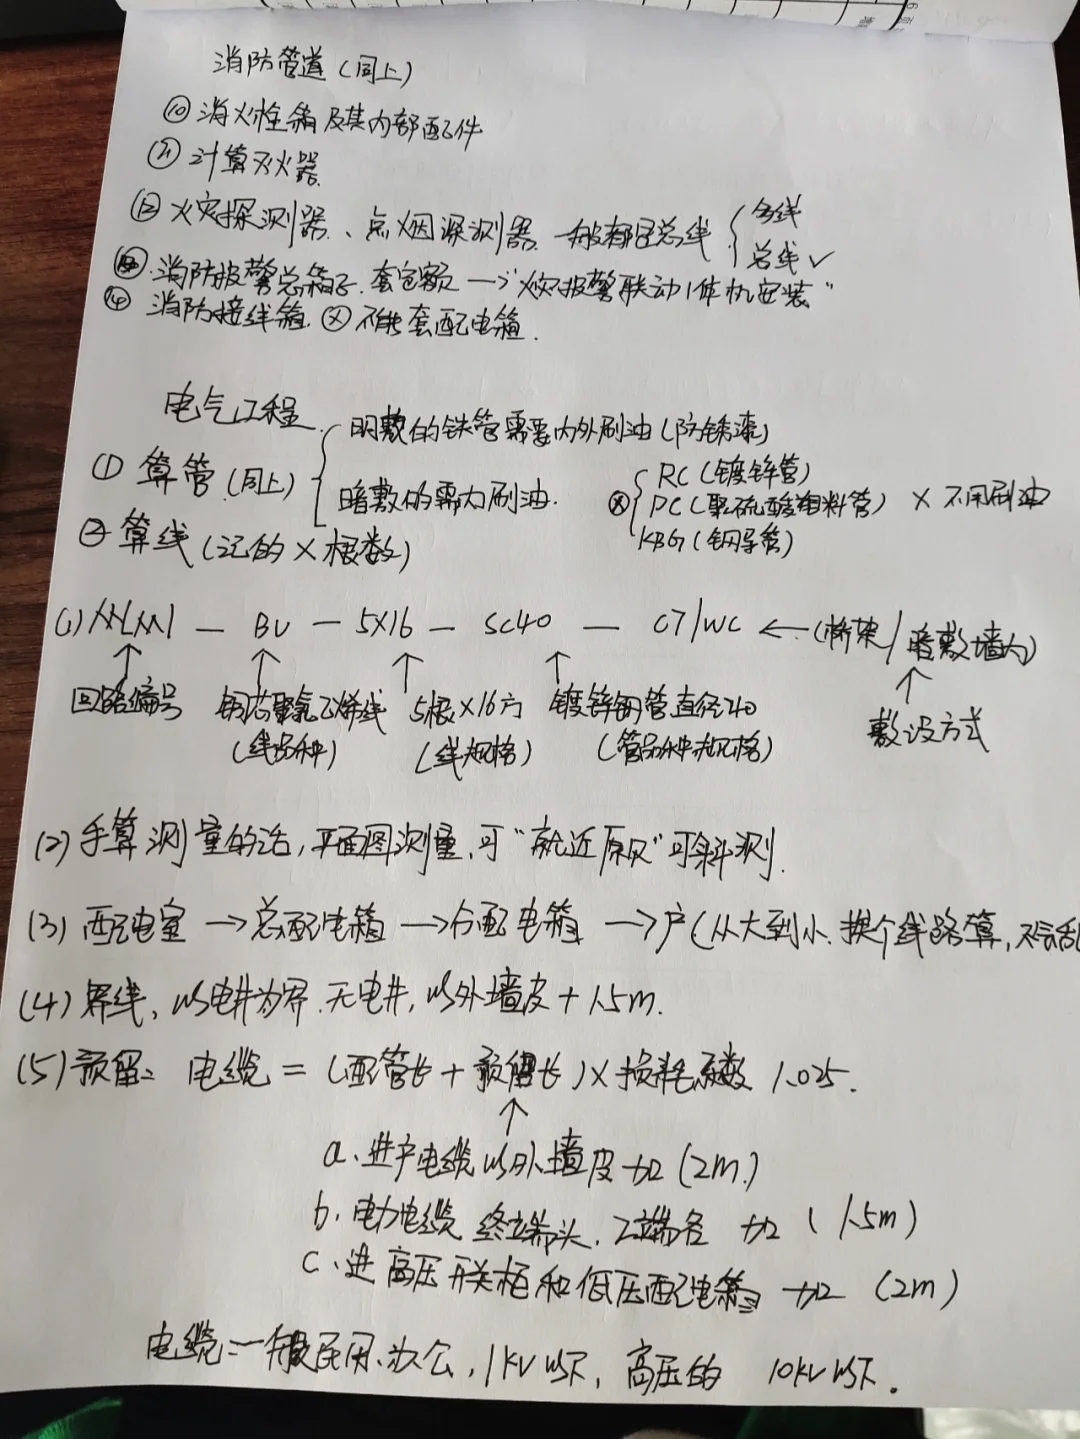 消防管道(同上)
⑩ 消火栓箱及其内部配件
⑪ 计算灭火器
⑫ 火灾探测器、点烟探测器 一般都是总线 { 多线
总线 ✓
⑬ 消防报警总箱子.套定额 → "火灾报警联动1体机安装"
⑭ 消防接线箱 ⊗ 不能套配电箱.
电气工程
明敷的铁管需要内外刷油(防锈漆)
① 算管(同上)
暗敷的需内刷油.
RC(镀锌管)
⊗ PC(聚硫酸塑料管) × 不用刷油
KBG(钢导管)
② 算线(记的×根数)
(1) — BV — 5×16 — SC40 — CT/WC ← (桥架/暗敷墙内)
回路编号 铜芯聚氯乙烯线 5根×16方 镀锌钢管直径40 敷设方式
(线品种) (线规格) (管品种规格)
(2) 手算测量的话,平面图测量,可"就近原则"可斜测.
(3) 配电室 → 总配电箱 → 分配电箱 → 户(从大到小.换个线路算,不会乱
(4) 界线,以电井为界.无电井,以外墙皮+1.5m.
(5) 预留: 电缆 = (配管长+预留长)×损耗系数 1.025.
a.进户电缆以外墙皮加(2m.)
b.电力电缆 终端头.2端各 加(1.5m)
c.进高压开关柜和低压配电箱 加(2m)
电缆:一般民用、办公,1kV以下,高压的 10kV以下.